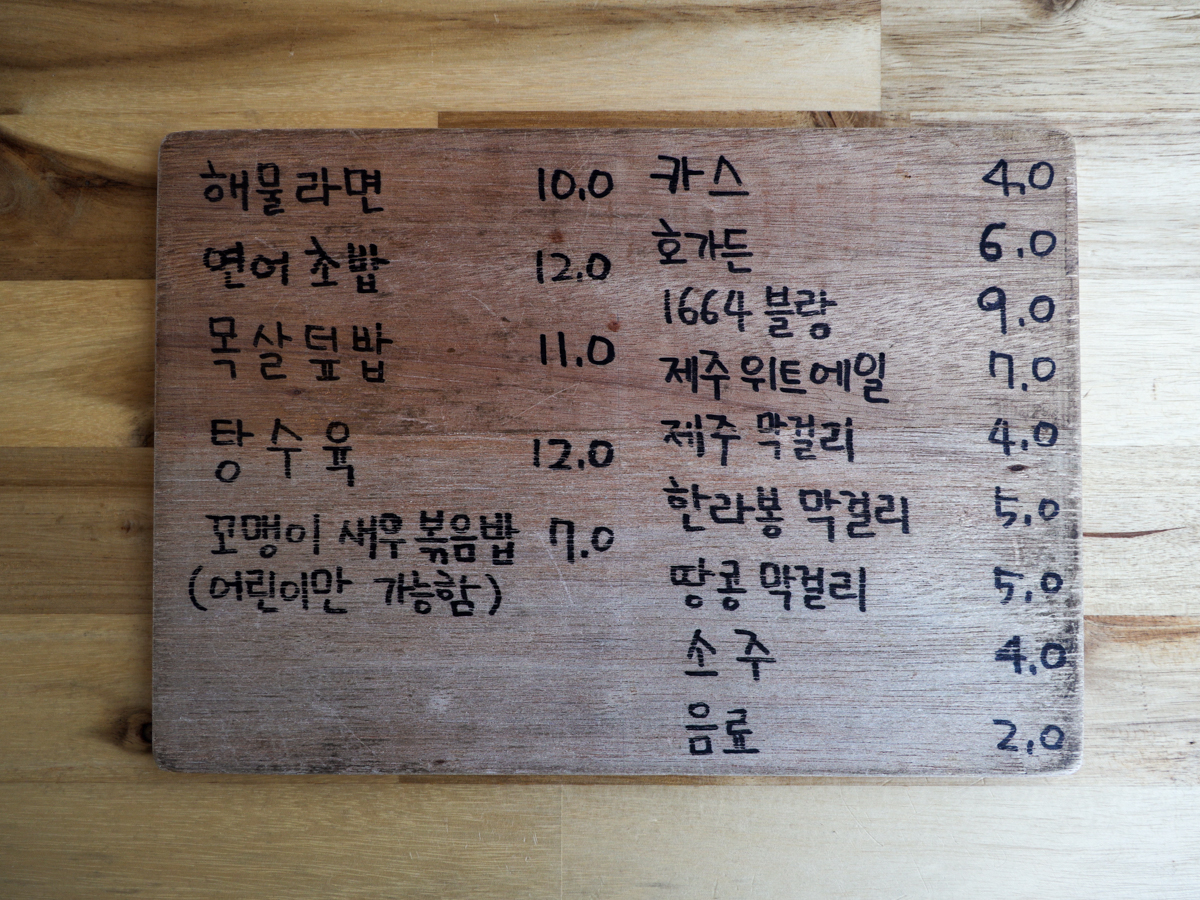 해물라면 10.0
연어 초밥 12.0
목살 덮밥 11.0
탕수육 12.0
꼬맹이 새우볶음밥 7.0
(어린이만 가능함)
카스 4.0
호가든 6.0
1664 블랑 9.0
제주 위트에일 7.0
제주 막걸리 4.0
한라봉 막걸리 5.0
땅콩 막걸리 5.0
소주 4.0
음료 2.0